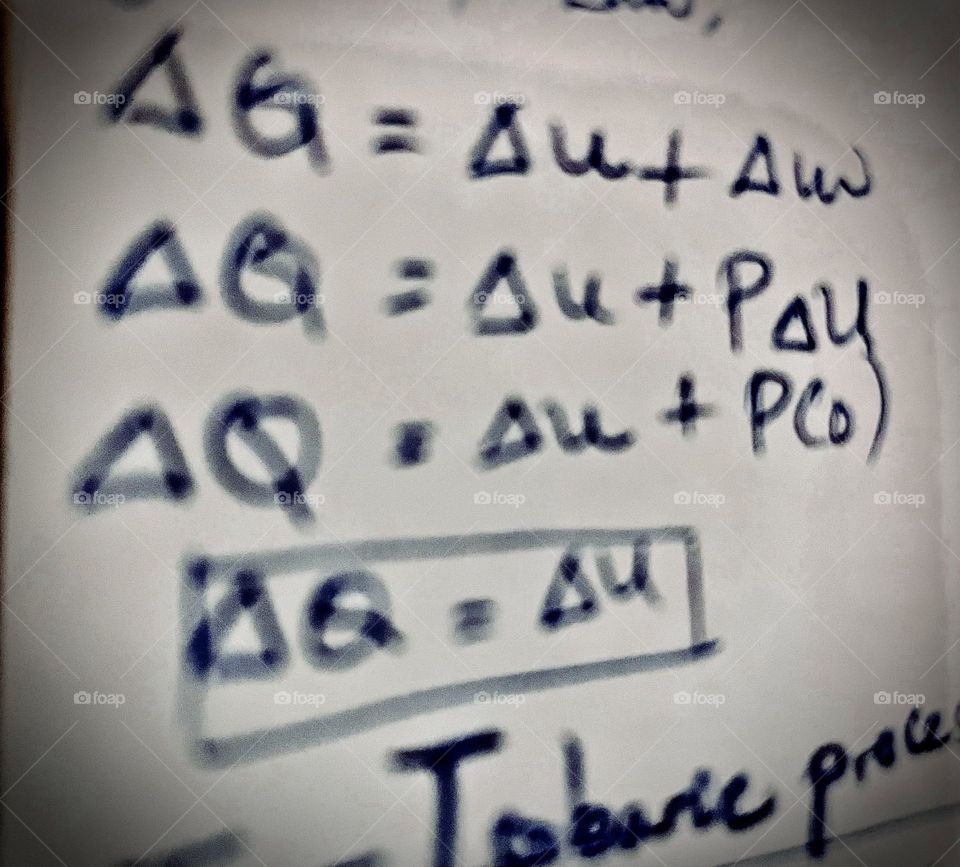 ΔQ = Δu + Δw
ΔQ = Δu + PΔV
ΔQ = Δu + P(0)
ΔQ = Δu
Isobaric process